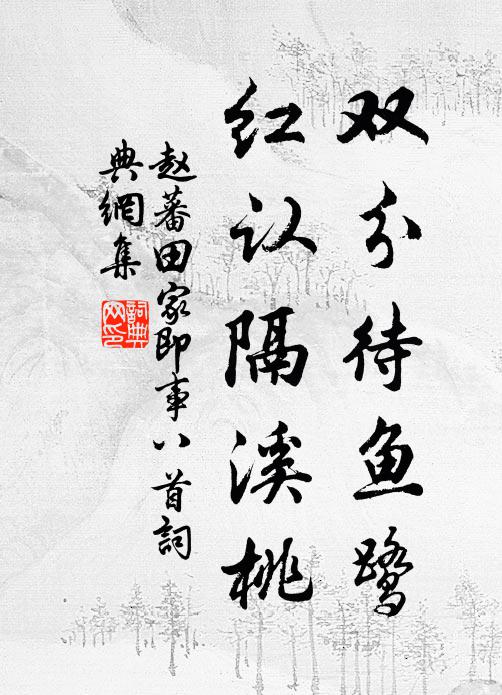 双分待鱼鹭
红认隔溪桃
赵蕃田家即事八首詞
典網集
詞典
网印